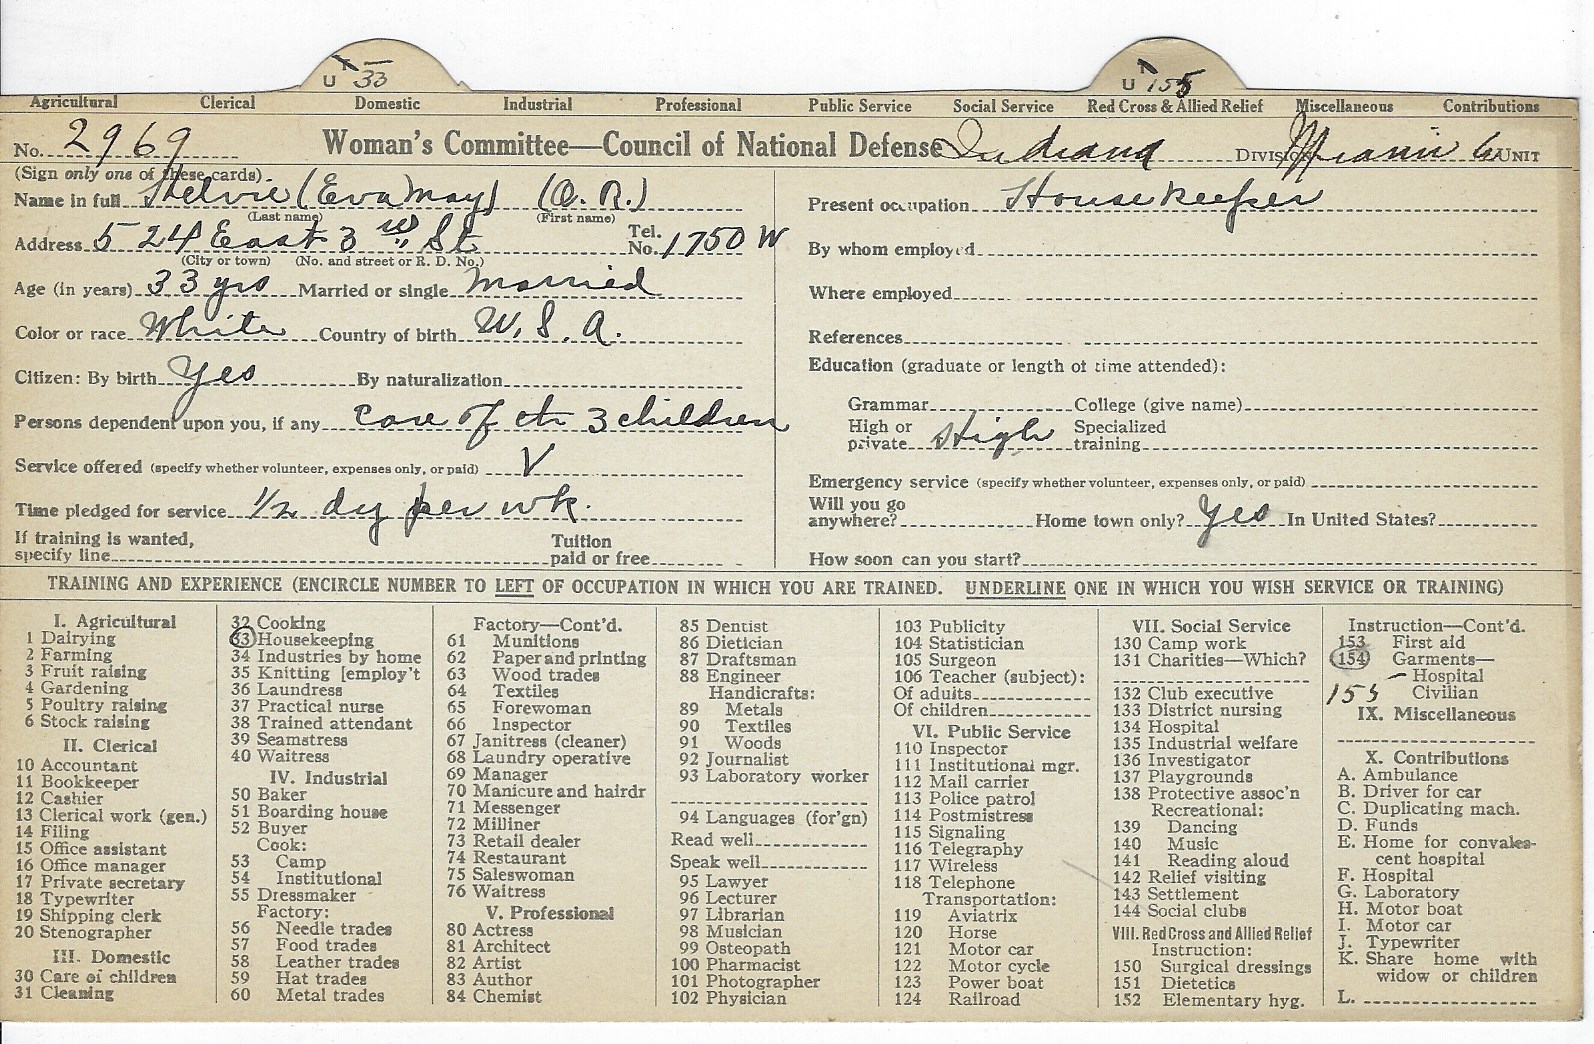 U 33 U 155
Agricultural Clerical Domestic Industrial Professional Public Service Social Service Red Cross & Allied Relief Miscellaneous Contributions
No. 2969 Woman's Committee—Council of National Defense Indiana DIVISION Miami Co UNIT
(Sign only one of these cards).
Name in full Helvie (Eva May) (O. R.)
(Last name) (First name)
Address 524 East 3rd St Tel. No. 1750 W
(City or town) (No. and street or R. D. No.)
Age (in years) 33 yrs Married or single Married
Color or race White Country of birth U. S. A.
Citizen: By birth Yes By naturalization
Persons dependent upon you, if any care of 3 children
Service offered (specify whether volunteer, expenses only, or paid) V
Time pledged for service 1/2 day per wk.
If training is wanted,
specify line Tuition paid or free
Present occupation Housekeeper
By whom employed
Where employed
References
Education (graduate or length of time attended):
Grammar College (give name)
High or private High Specialized training
Emergency service (specify whether volunteer, expenses only, or paid)
Will you go anywhere? Home town only? Yes In United States?
How soon can you start?
TRAINING AND EXPERIENCE (ENCIRCLE NUMBER TO LEFT OF OCCUPATION IN WHICH YOU ARE TRAINED. UNDERLINE ONE IN WHICH YOU WISH SERVICE OR TRAINING)
I. Agricultural
1 Dairying
2 Farming
3 Fruit raising
4 Gardening
5 Poultry raising
6 Stock raising
II. Clerical
10 Accountant
11 Bookkeeper
12 Cashier
13 Clerical work (gen.)
14 Filing
15 Office assistant
16 Office manager
17 Private secretary
18 Typewriter
19 Shipping clerk
20 Stenographer
III. Domestic
30 Care of children
31 Cleaning
32 Cooking
33 Housekeeping
34 Industries by home
35 Knitting [employ't
36 Laundress
37 Practical nurse
38 Trained attendant
39 Seamstress
40 Waitress
IV. Industrial
50 Baker
51 Boarding house
52 Buyer
Cook:
53 Camp
54 Institutional
55 Dressmaker
Factory:
56 Needle trades
57 Food trades
58 Leather trades
59 Hat trades
60 Metal trades
Factory—Cont'd.
61 Munitions
62 Paper and printing
63 Wood trades
64 Textiles
65 Forewoman
66 Inspector
67 Janitress (cleaner)
68 Laundry operative
69 Manager
70 Manicure and hairdr
71 Messenger
72 Milliner
73 Retail dealer
74 Restaurant
75 Saleswoman
76 Waitress
V. Professional
80 Actress
81 Architect
82 Artist
83 Author
84 Chemist
85 Dentist
86 Dietician
87 Draftsman
88 Engineer
Handicrafts:
89 Metals
90 Textiles
91 Woods
92 Journalist
93 Laboratory worker
94 Languages (for'gn)
Read well
Speak well
95 Lawyer
96 Lecturer
97 Librarian
98 Musician
99 Osteopath
100 Pharmacist
101 Photographer
102 Physician
103 Publicity
104 Statistician
105 Surgeon
106 Teacher (subject):
Of adults
Of children
VI. Public Service
110 Inspector
111 Institutional mgr.
112 Mail carrier
113 Police patrol
114 Postmistress
115 Signaling
116 Telegraphy
117 Wireless
118 Telephone
Transportation:
119 Aviatrix
120 Horse
121 Motor car
122 Motor cycle
123 Power boat
124 Railroad
VII. Social Service
130 Camp work
131 Charities—Which?
132 Club executive
133 District nursing
134 Hospital
135 Industrial welfare
136 Investigator
137 Playgrounds
138 Protective assoc'n
Recreational:
139 Dancing
140 Music
141 Reading aloud
142 Relief visiting
143 Settlement
144 Social clubs
VIII. Red Cross and Allied Relief
Instruction:
150 Surgical dressings
151 Dietetics
152 Elementary hyg.
Instruction—Cont'd.
153 First aid
154 Garments—
Hospital
155 Civilian
IX. Miscellaneous
X. Contributions
A. Ambulance
B. Driver for car
C. Duplicating mach.
D. Funds
E. Home for convales-
cent hospital
F. Hospital
G. Laboratory
H. Motor boat
I. Motor car
J. Typewriter
K. Share home with
widow or children
L.